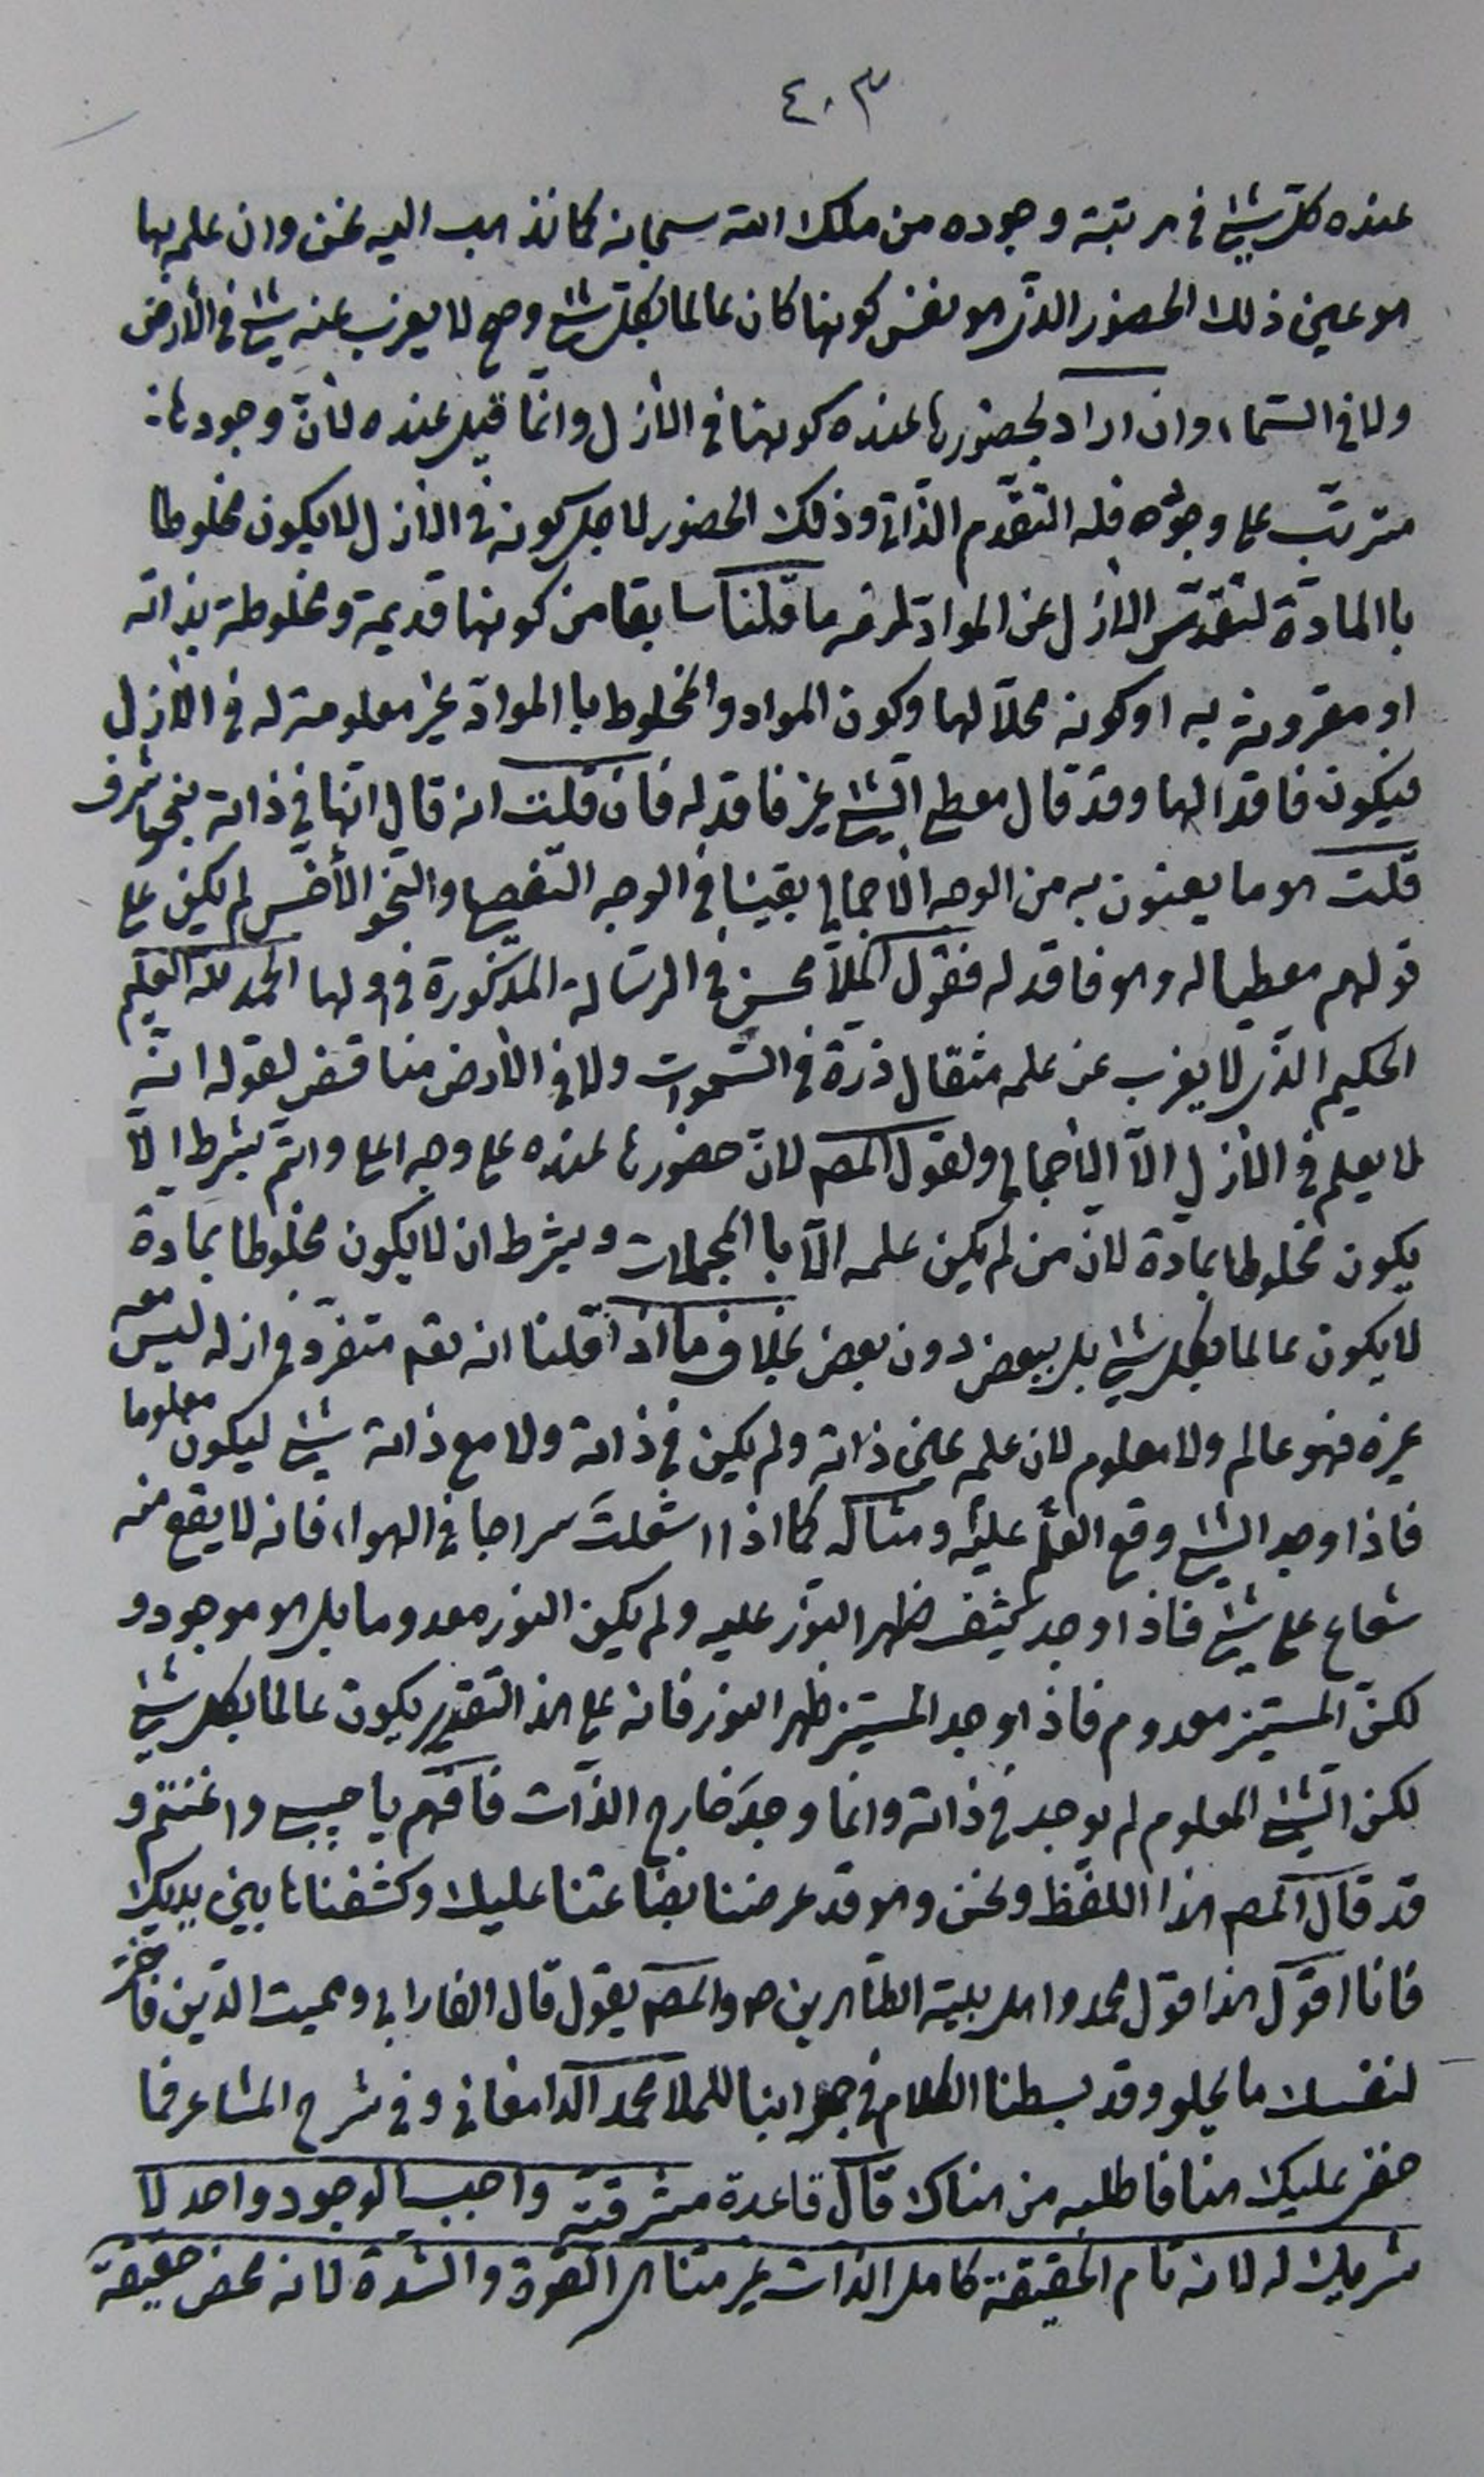 ٤٠٣
عنده كل شيئ في مرتبة وجوده من ملك الله سبحانه كما نذهب اليه نحن وان علمه بها
هو عين ذلك الحضور الذى هو نفس كونها كان عالما بكل شيئ وصح لا يعزب عنه شيئ في الأرض
ولا في السماء وان اراد بحضورها عنده كونها في الأزل وانما قيل عنده لأن وجودها
مترتب على وجوده فله التقدم الذاتي وذلك الحضور لاجل كونه في الأزل لا يكون مخلوطا
باالمادة لتقدس الأزل عن المواد لزمه ما قلنا سابقا من كونها قديمة ومخلوطة بذاته
او مقرونة به او كونه محلا لها وكون المواد والمخلوط باالمواد غير معلومة له في الأزل
فيكون فاقدا لها وقد قال معطي الشيئ غير فاقد له فان قلت انه قال انها في ذاته بنحو اشرف
قلت هو ما يعنون به من الوجه الأجمالي بقينا في الوجه التفصيلي والنحو الأخس لم يكن على
قولهم معطيا له وهو فاقد له فقول الملا محسن في الرسالة المذكورة في اولها الحمد لله العليم
الحكيم الذى لا يعزب عن علمه مثقال ذرة في السموات ولا في الأرض مناقض لقوله انه
لا يعلم في الأزل الا الأجمالي ولقول المصـ لان حضورها عنده على وجه اعلى واتم بشرط الا
يكون مخلوطا بمادة لان من لم يكن علمه الا باالمجملات وبشرط ان لا يكون مخلوطا بمادة
لا يكون عالما بكل شيئ بل ببعض دون بعض بخلاف ما اذا قلنا انه تعـ متفرد في ازله ليس معه
غيره فهو عالم ولا معلوم لان علمه عين ذاته ولم يكن في ذاته ولا مع ذاته شيئ ليكون معلوما
فاذا وجد الشيئ وقع العلم عليه ومثاله كما اذا اشعلت سراجا في الهواء فانه لا يقع منه
شعاع على شيئ فاذا وجد كثيف ظهر النور عليه ولم يكن النور معدوما بل هو موجود و
لكن المستنير معدوم فاذا وجد المستنير ظهر النور فانه على هذا التقدير يكون عالما بكل شيئ
لكن الشيئ المعلوم لم يوجد في ذاته وانما وجد خارج الذات فافهم يا حبيبي واغتنم و
قد قال المصـ هذا اللفظ ونحن وهو قد عرضنا بضاعتنا عليك وكشفناها بين يديك
فانا اقول هذا قول محمد واهل بيته الطاهرين صـ والمصـ يقول قال الفارابي ومميت الدين فاختر
لنفسك ما يحلو وقد بسطنا الكلام في جوابنا للملا محمد الدامغاني وفي شرح المشاعر فما
خفى عليك هنا فاطلبه من هناك قال قاعدة مشرقية واجب الوجود واحد لا
شريك له لانه تام الحقيقة كامل الذات غير متناهى القوة والشدة لانه محض حقيقة